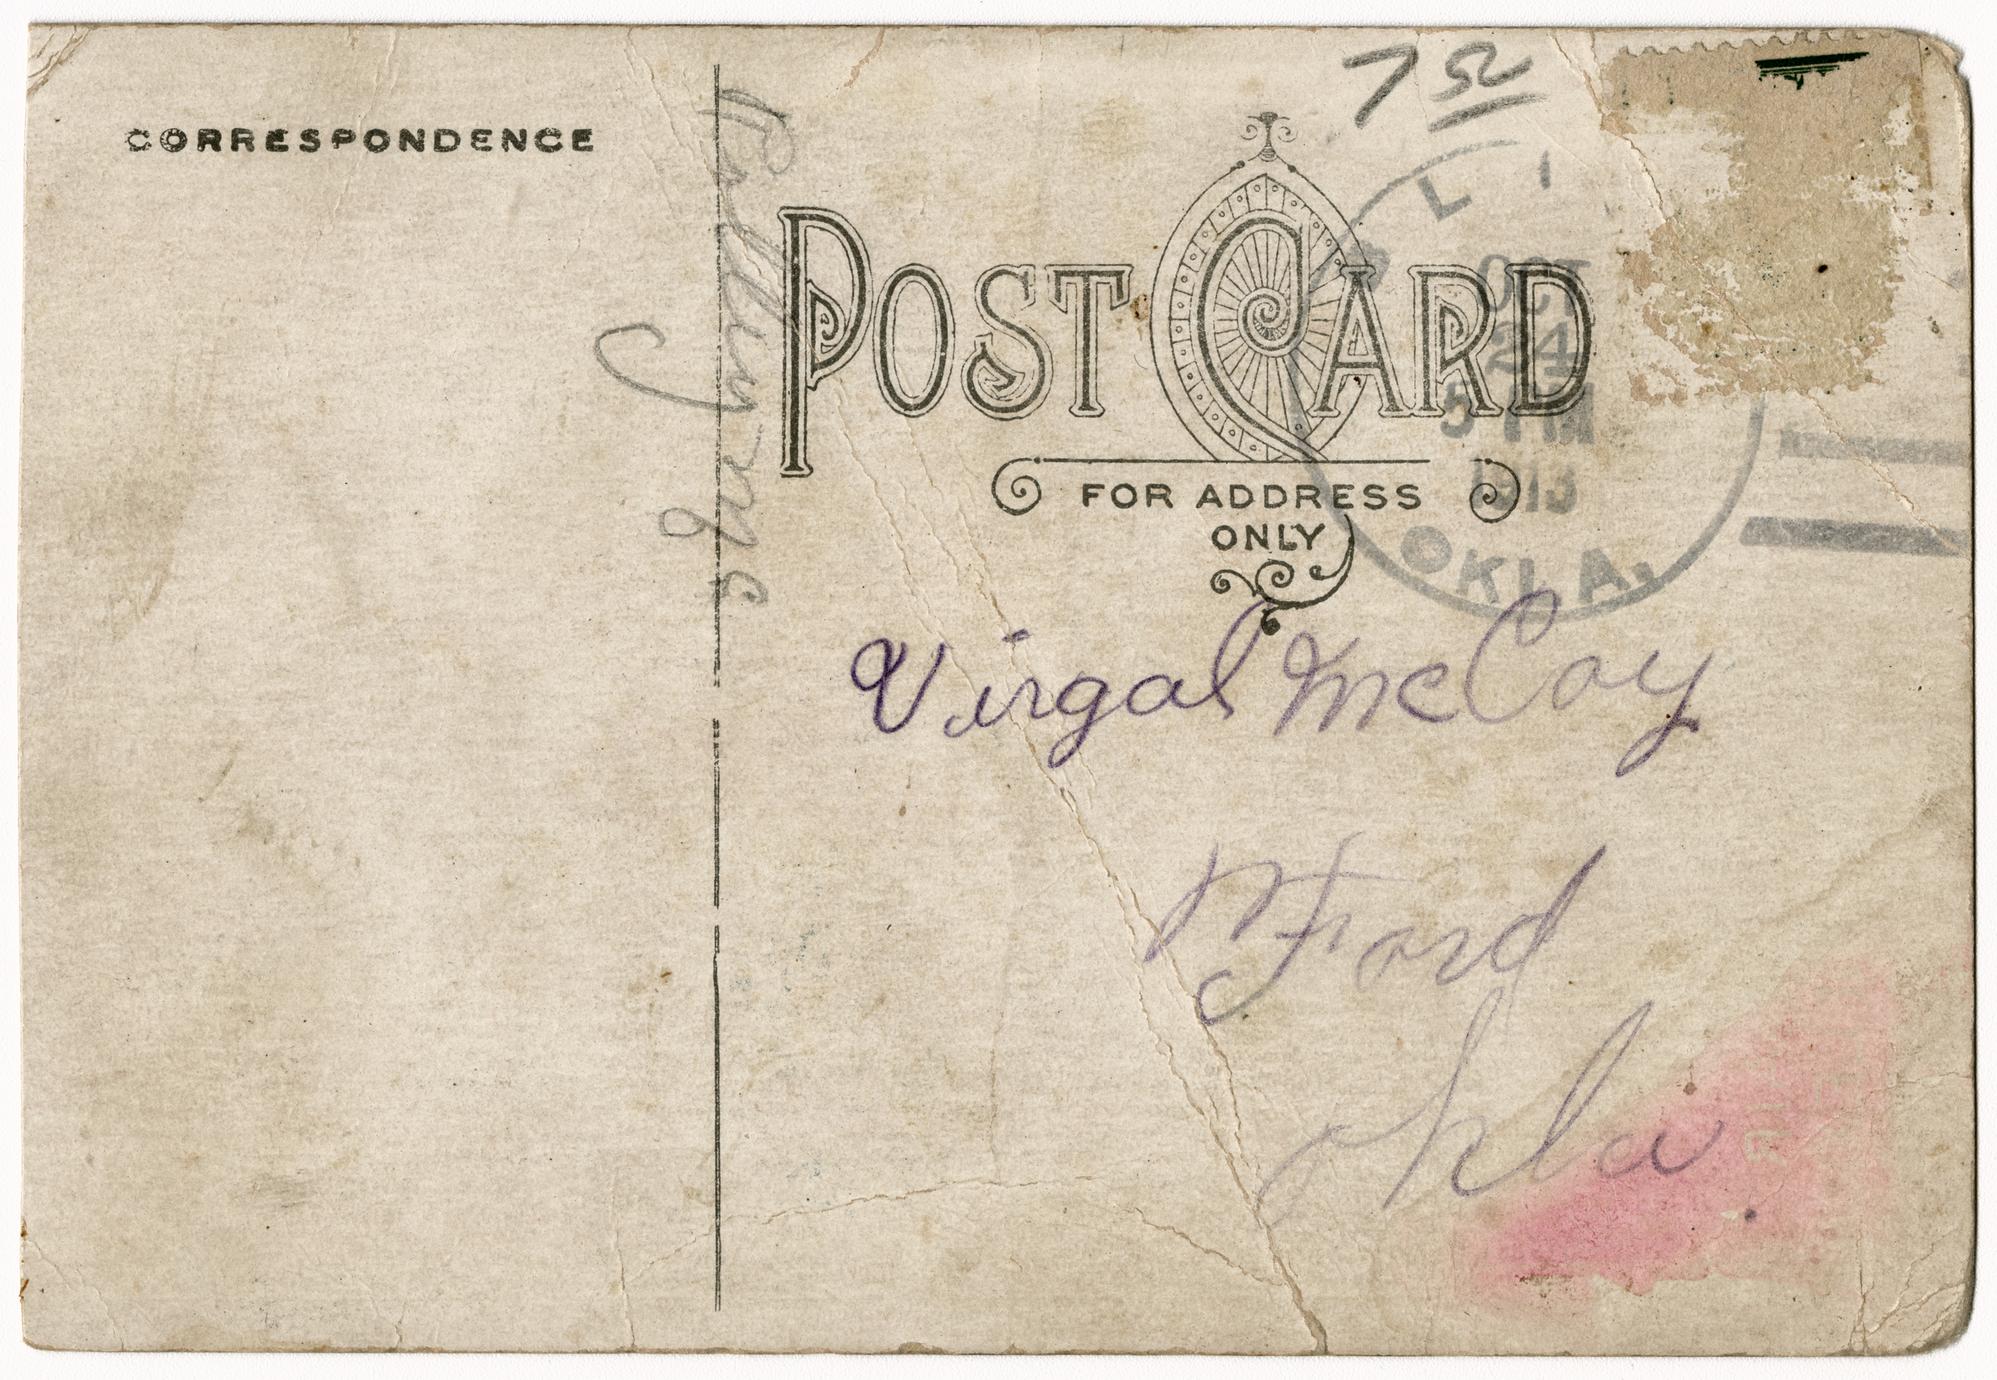 CORRESPONDENCE
7 50
POST CARD
FOR ADDRESS
ONLY
L I
OCT
24
5 PM
1913
OKLA.
Virgal McCoy
Ford
Okla